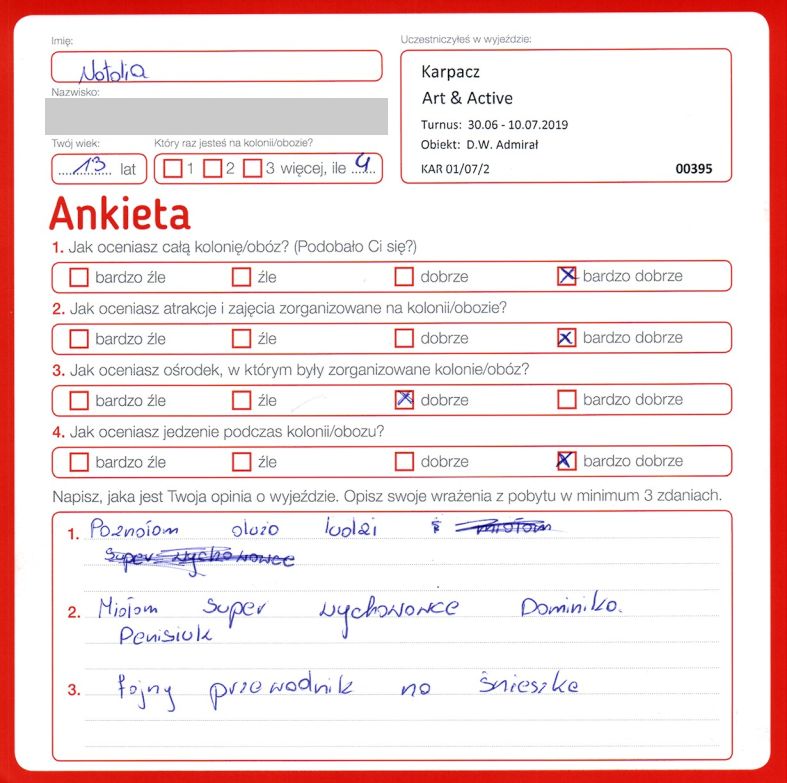 Imię:
Natalia
Nazwisko:
Twój wiek:
13 lat
Który raz jesteś na kolonii/obozie?
1 2 3 więcej, ile 4
Uczestniczyłeś w wyjeździe:
Karpacz
Art & Active
Turnus: 30.06 - 10.07.2019
Obiekt: D.W. Admirał
KAR 01/07/2 00395
Ankieta
1. Jak oceniasz całą kolonię/obóz? (Podobało Ci się?)
bardzo źle źle dobrze bardzo dobrze
2. Jak oceniasz atrakcje i zajęcia zorganizowane na kolonii/obozie?
bardzo źle źle dobrze bardzo dobrze
3. Jak oceniasz ośrodek, w którym były zorganizowane kolonie/obóz?
bardzo źle źle dobrze bardzo dobrze
4. Jak oceniasz jedzenie podczas kolonii/obozu?
bardzo źle źle dobrze bardzo dobrze
Napisz, jaka jest Twoja opinia o wyjeździe. Opisz swoje wrażenia z pobytu w minimum 3 zdaniach.
1. Poznałam dużo ludzi i miałam
super wychowawce
2. Miałam super wychowawce Dominika.
Penisiuk
3. fajny przewodnik na śnieszke